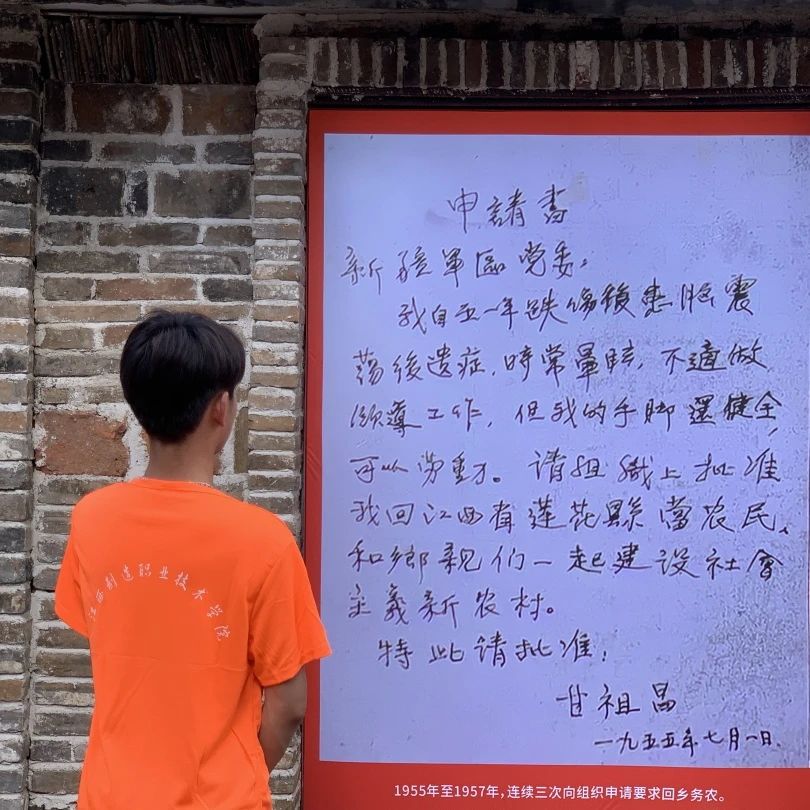 申請書
新疆軍區党委:
我自五一年跌傷後患脑震
蕩後遗症,時常暈眩,不適做
領導工作,但我的手脚還健全,
可以劳動。请组織上批准
我回江西省蓮花縣當农民、
和鄉親们一起建设社會
主義新农村。
特此请批准!
甘祖昌
一九五五年七月一日.
1955年至1957年,连续三次向组织申请要求回乡务农。
江西制造职业技术学院